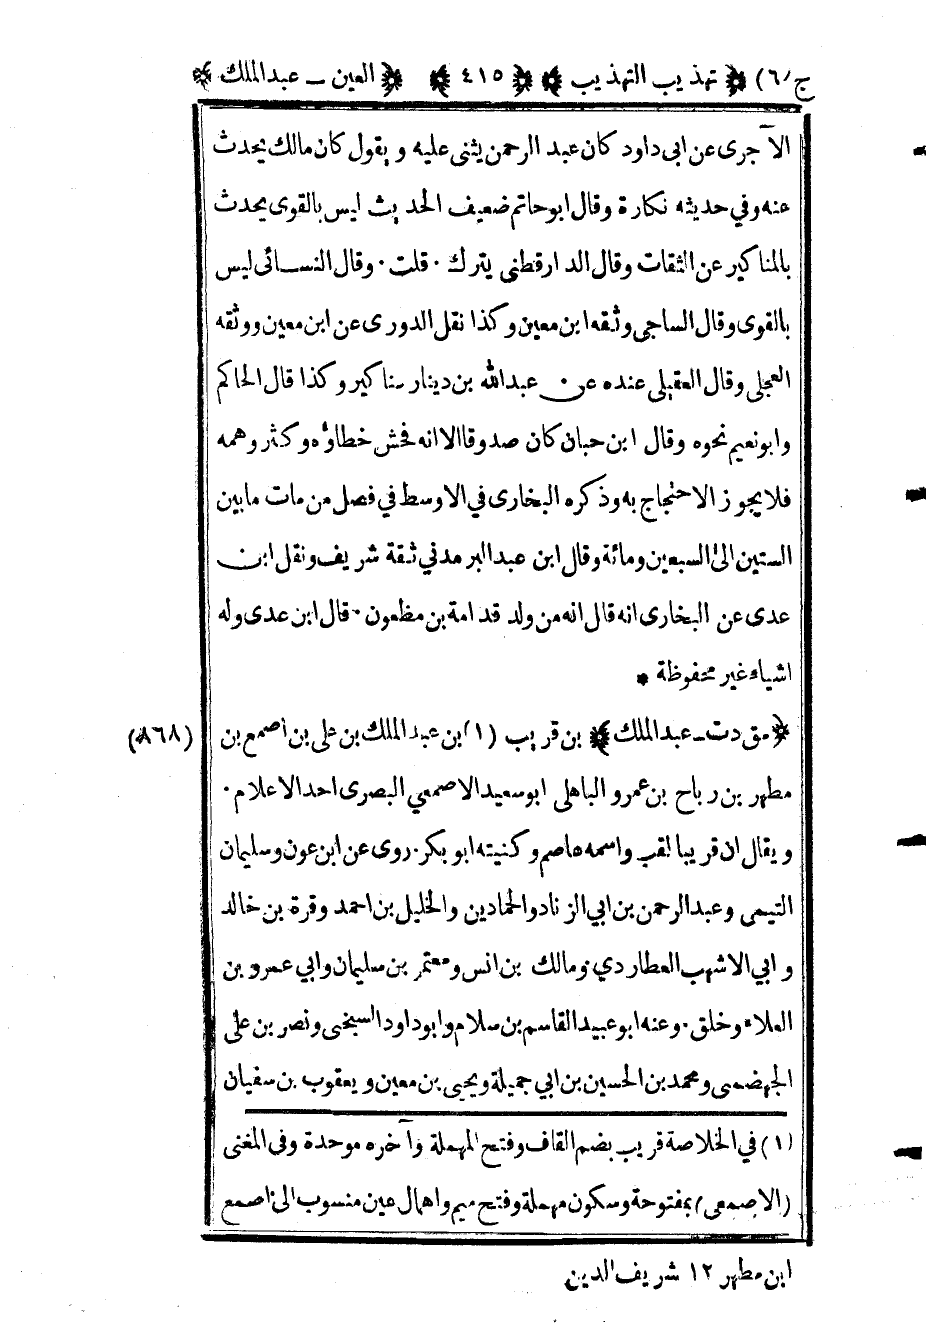 ج/٦) ﴿ تهذيب التهذيب ﴾ ﴿ ٤١٥ ﴾ ﴿ العين ـ عبدالملك ﴾
الآجرى عن ابى داود كان عبد الرحمن يثنى عليه ويقول كان مالك يحدث
عنه وفي حديثه نكارة وقال ابوحاتم ضعيف الحديث ليس بالقوى يحدث
بالمناكير عن الثقات وقال الدارقطنى يترك ٠ قلت ٠ وقال النسائى ليس
بالقوى وقال الساجى وثقه ابن معين وكذا نقل الدورى عن ابن معين ووثقه
العجلى وقال العقيلى عنده عن ٠ عبدالله بن دينار مناكير وكذا قال الحاكم
وابونعيم نحوه وقال ابن حبان كان صدوقا الا انه فحش خطاؤه وكثر وهمه
فلا يجوز الاحتجاج به وذكره البخارى في الاوسط في فصل من مات ما بين
الستين الى السبعين ومائة وقال ابن عبدالبر مدني ثقة شريف ونقل ابن
عدى عن البخارى انه قال انه من ولد قدامة بن مظعون ٠ قال ابن عدى وله
اشياء غير محفوظة *
﴿ مق دت ـ عبدالملك ﴾ بن قريب (١) بن عبدالملك بن على بن اصمع بن
مطهر بن رباح بن عمرو الباهلى ابوسعيد الاصمعي البصرى احد الاعلام ٠
ويقال ان قريبا لقب واسمه عاصم وكنيته ابو بكر ٠ روى عن ابن عون وسليمان
التيمى وعبدالرحمن بن ابي الزناد والحمادين والخليل بن احمد وقرة بن خالد
وابي الاشهب العطاردي ومالك بن انس ومعتمر بن سليمان وابي عمرو بن
العلاء وخلق ٠ وعنه ابوعبيد القاسم بن سلام وابوداود السبخى ونصر بن على
الجهضمى ومحمد بن الحسين بن ابي جميلة ويحيى بن معين ويعقوب بن سفيان
(٨٦٨)
(١) في الخلاصة قريب بضم القاف وفتح المهملة وآخره موحدة وفى المغنى
(الاصمعى) بمفتوحة وسكون مهملة وفتح ميم واهمال عين منسوب الى اصمع
ابن مطهر ١٢ شريف الدين